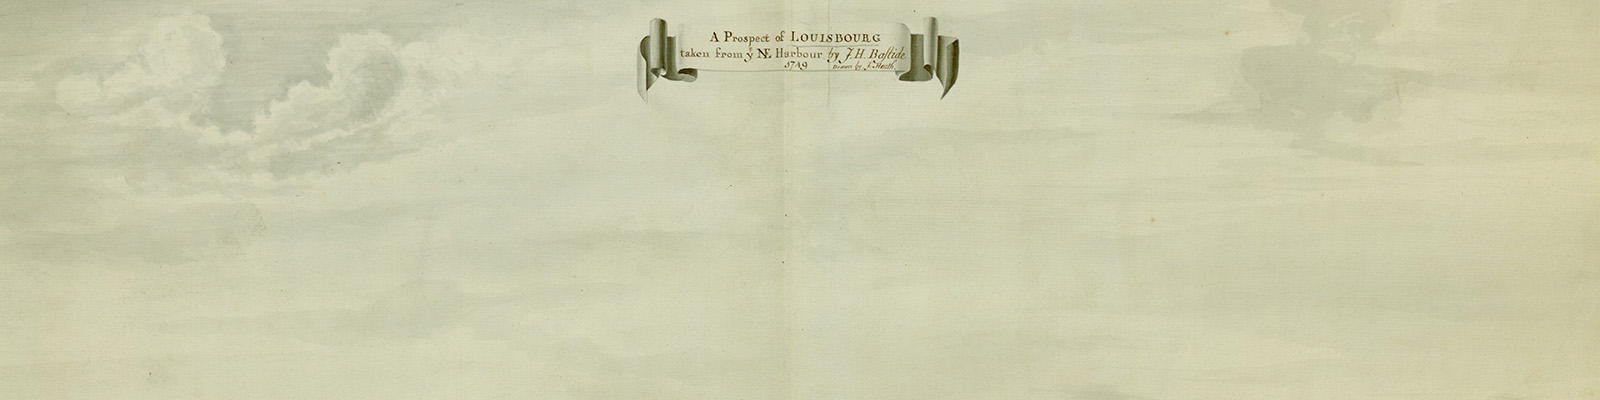 A Prospect of LOUISBOURG
taken from ẏ NE Harbour by J. H. Baſtide
1749 Drawn by T. Heath.